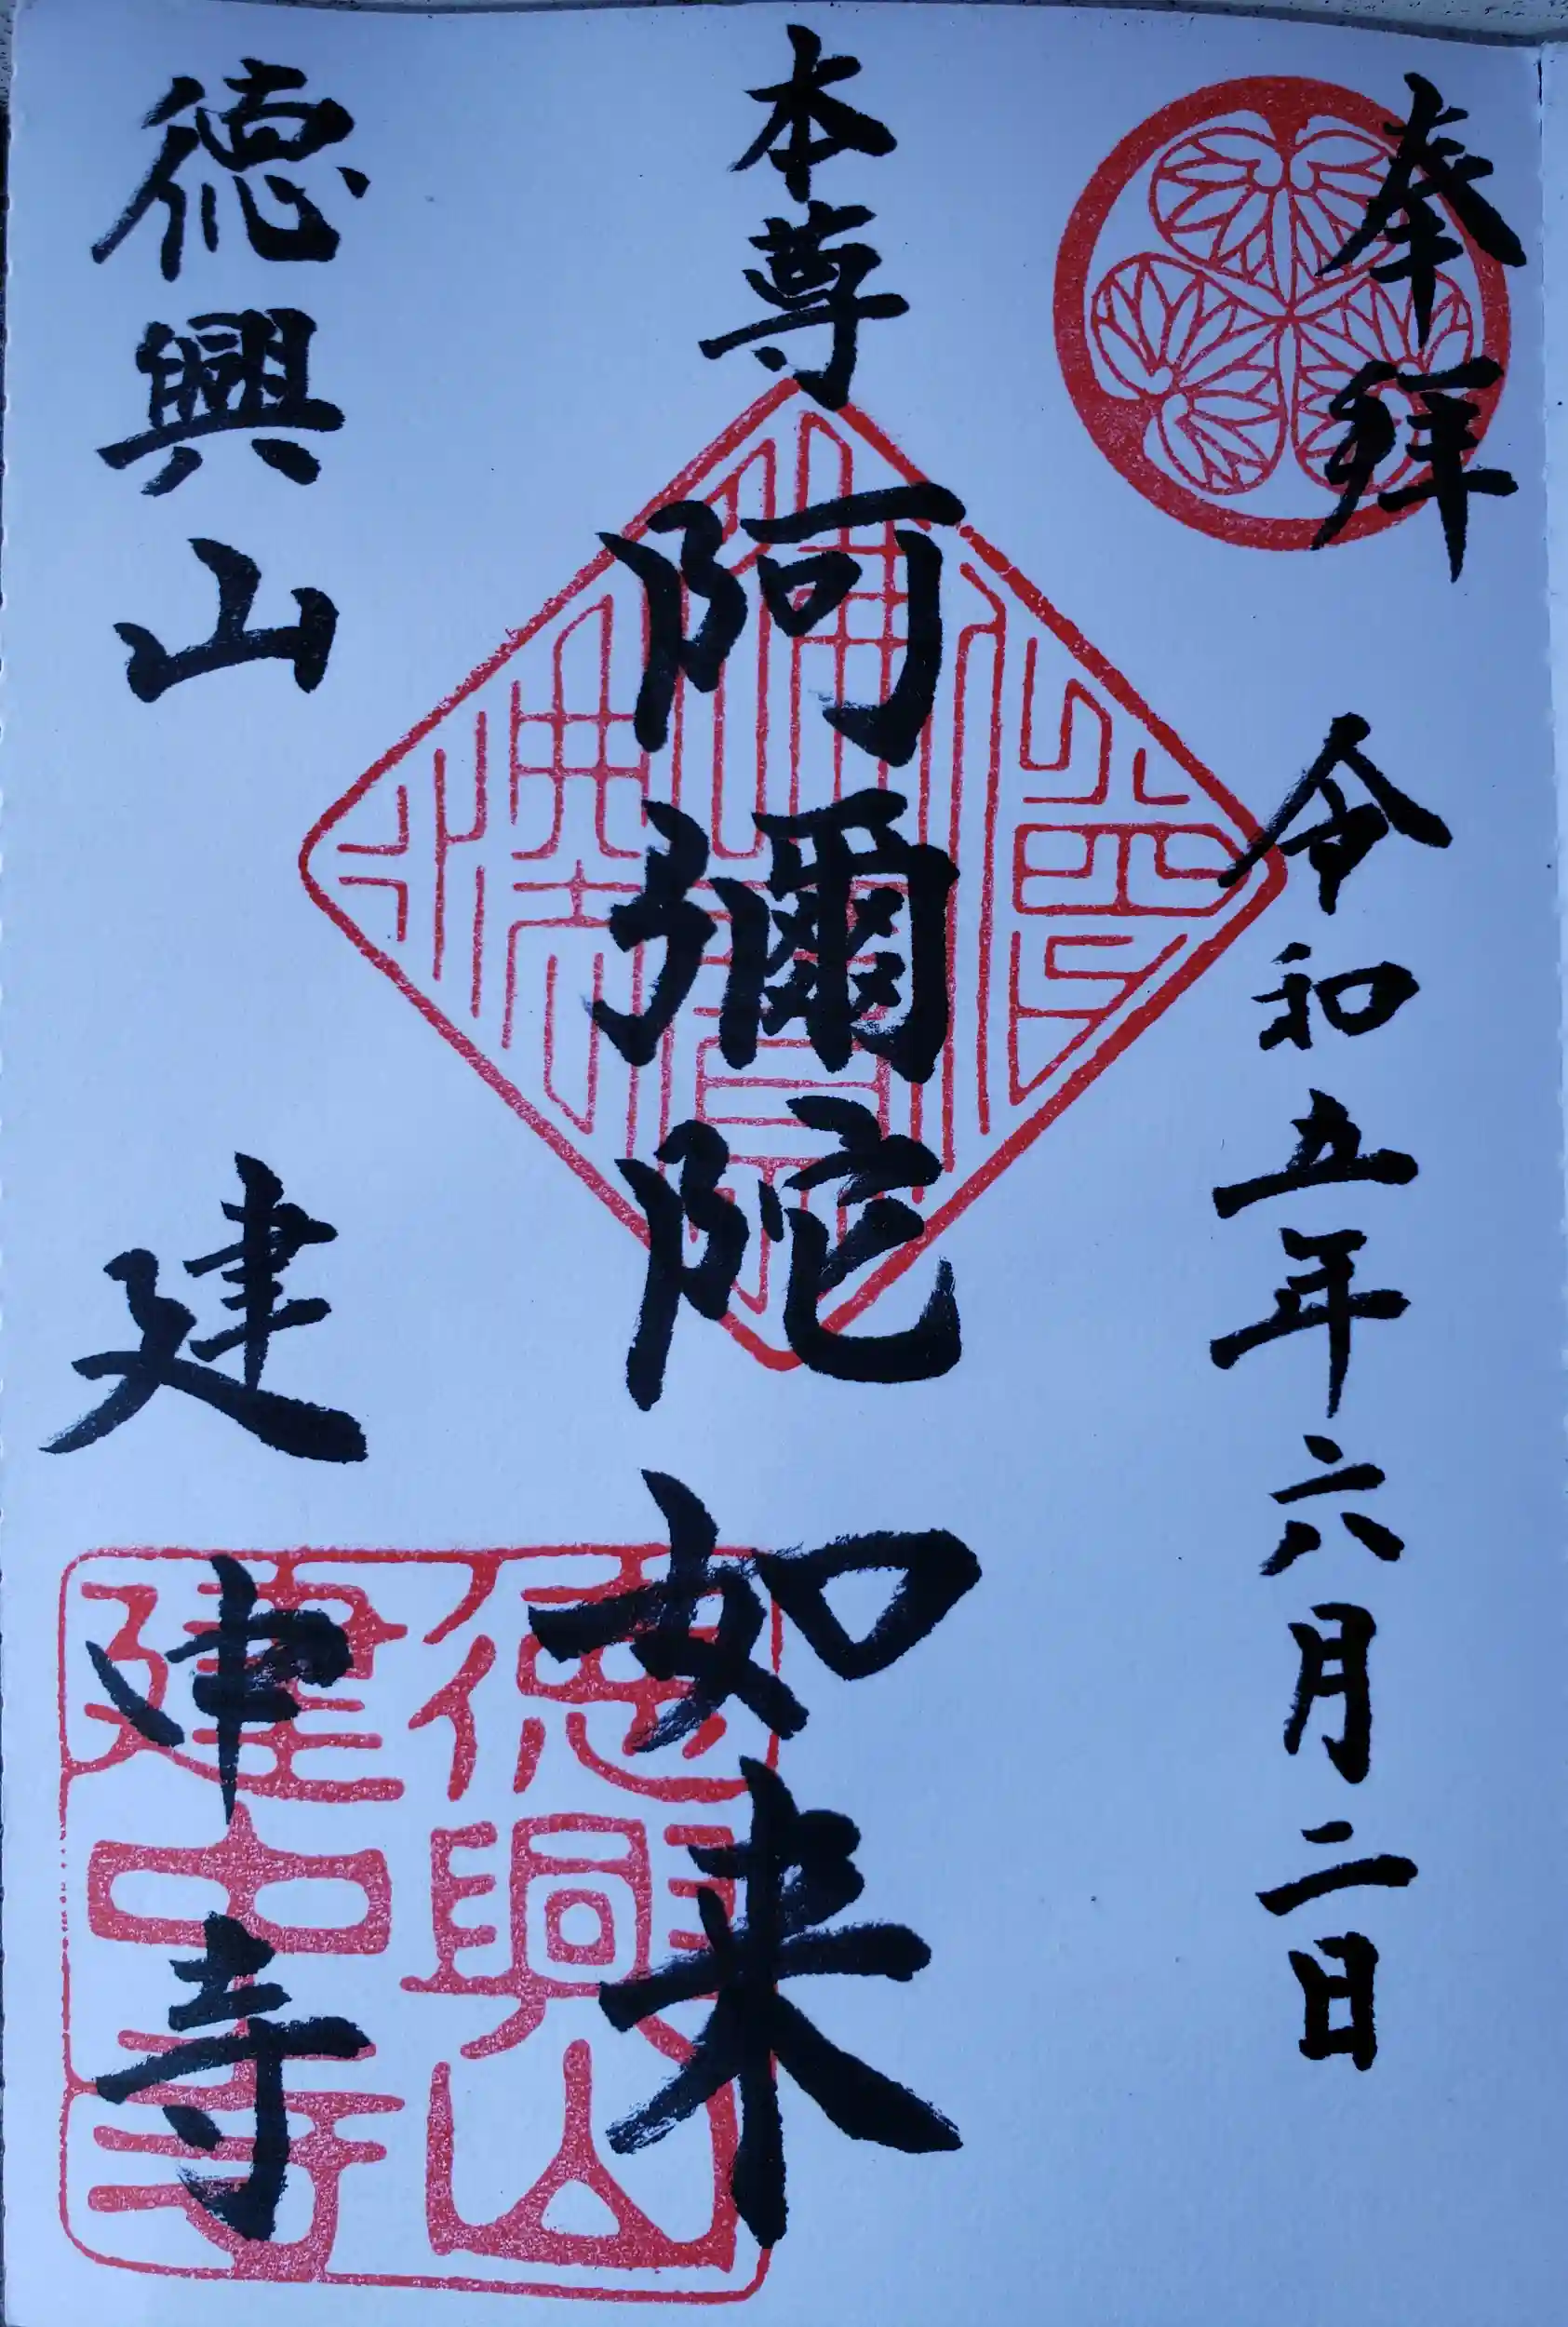 奉拝 令和五年六月二日
本尊 阿彌陀如来
徳興山 建中寺
徳興山
建中寺